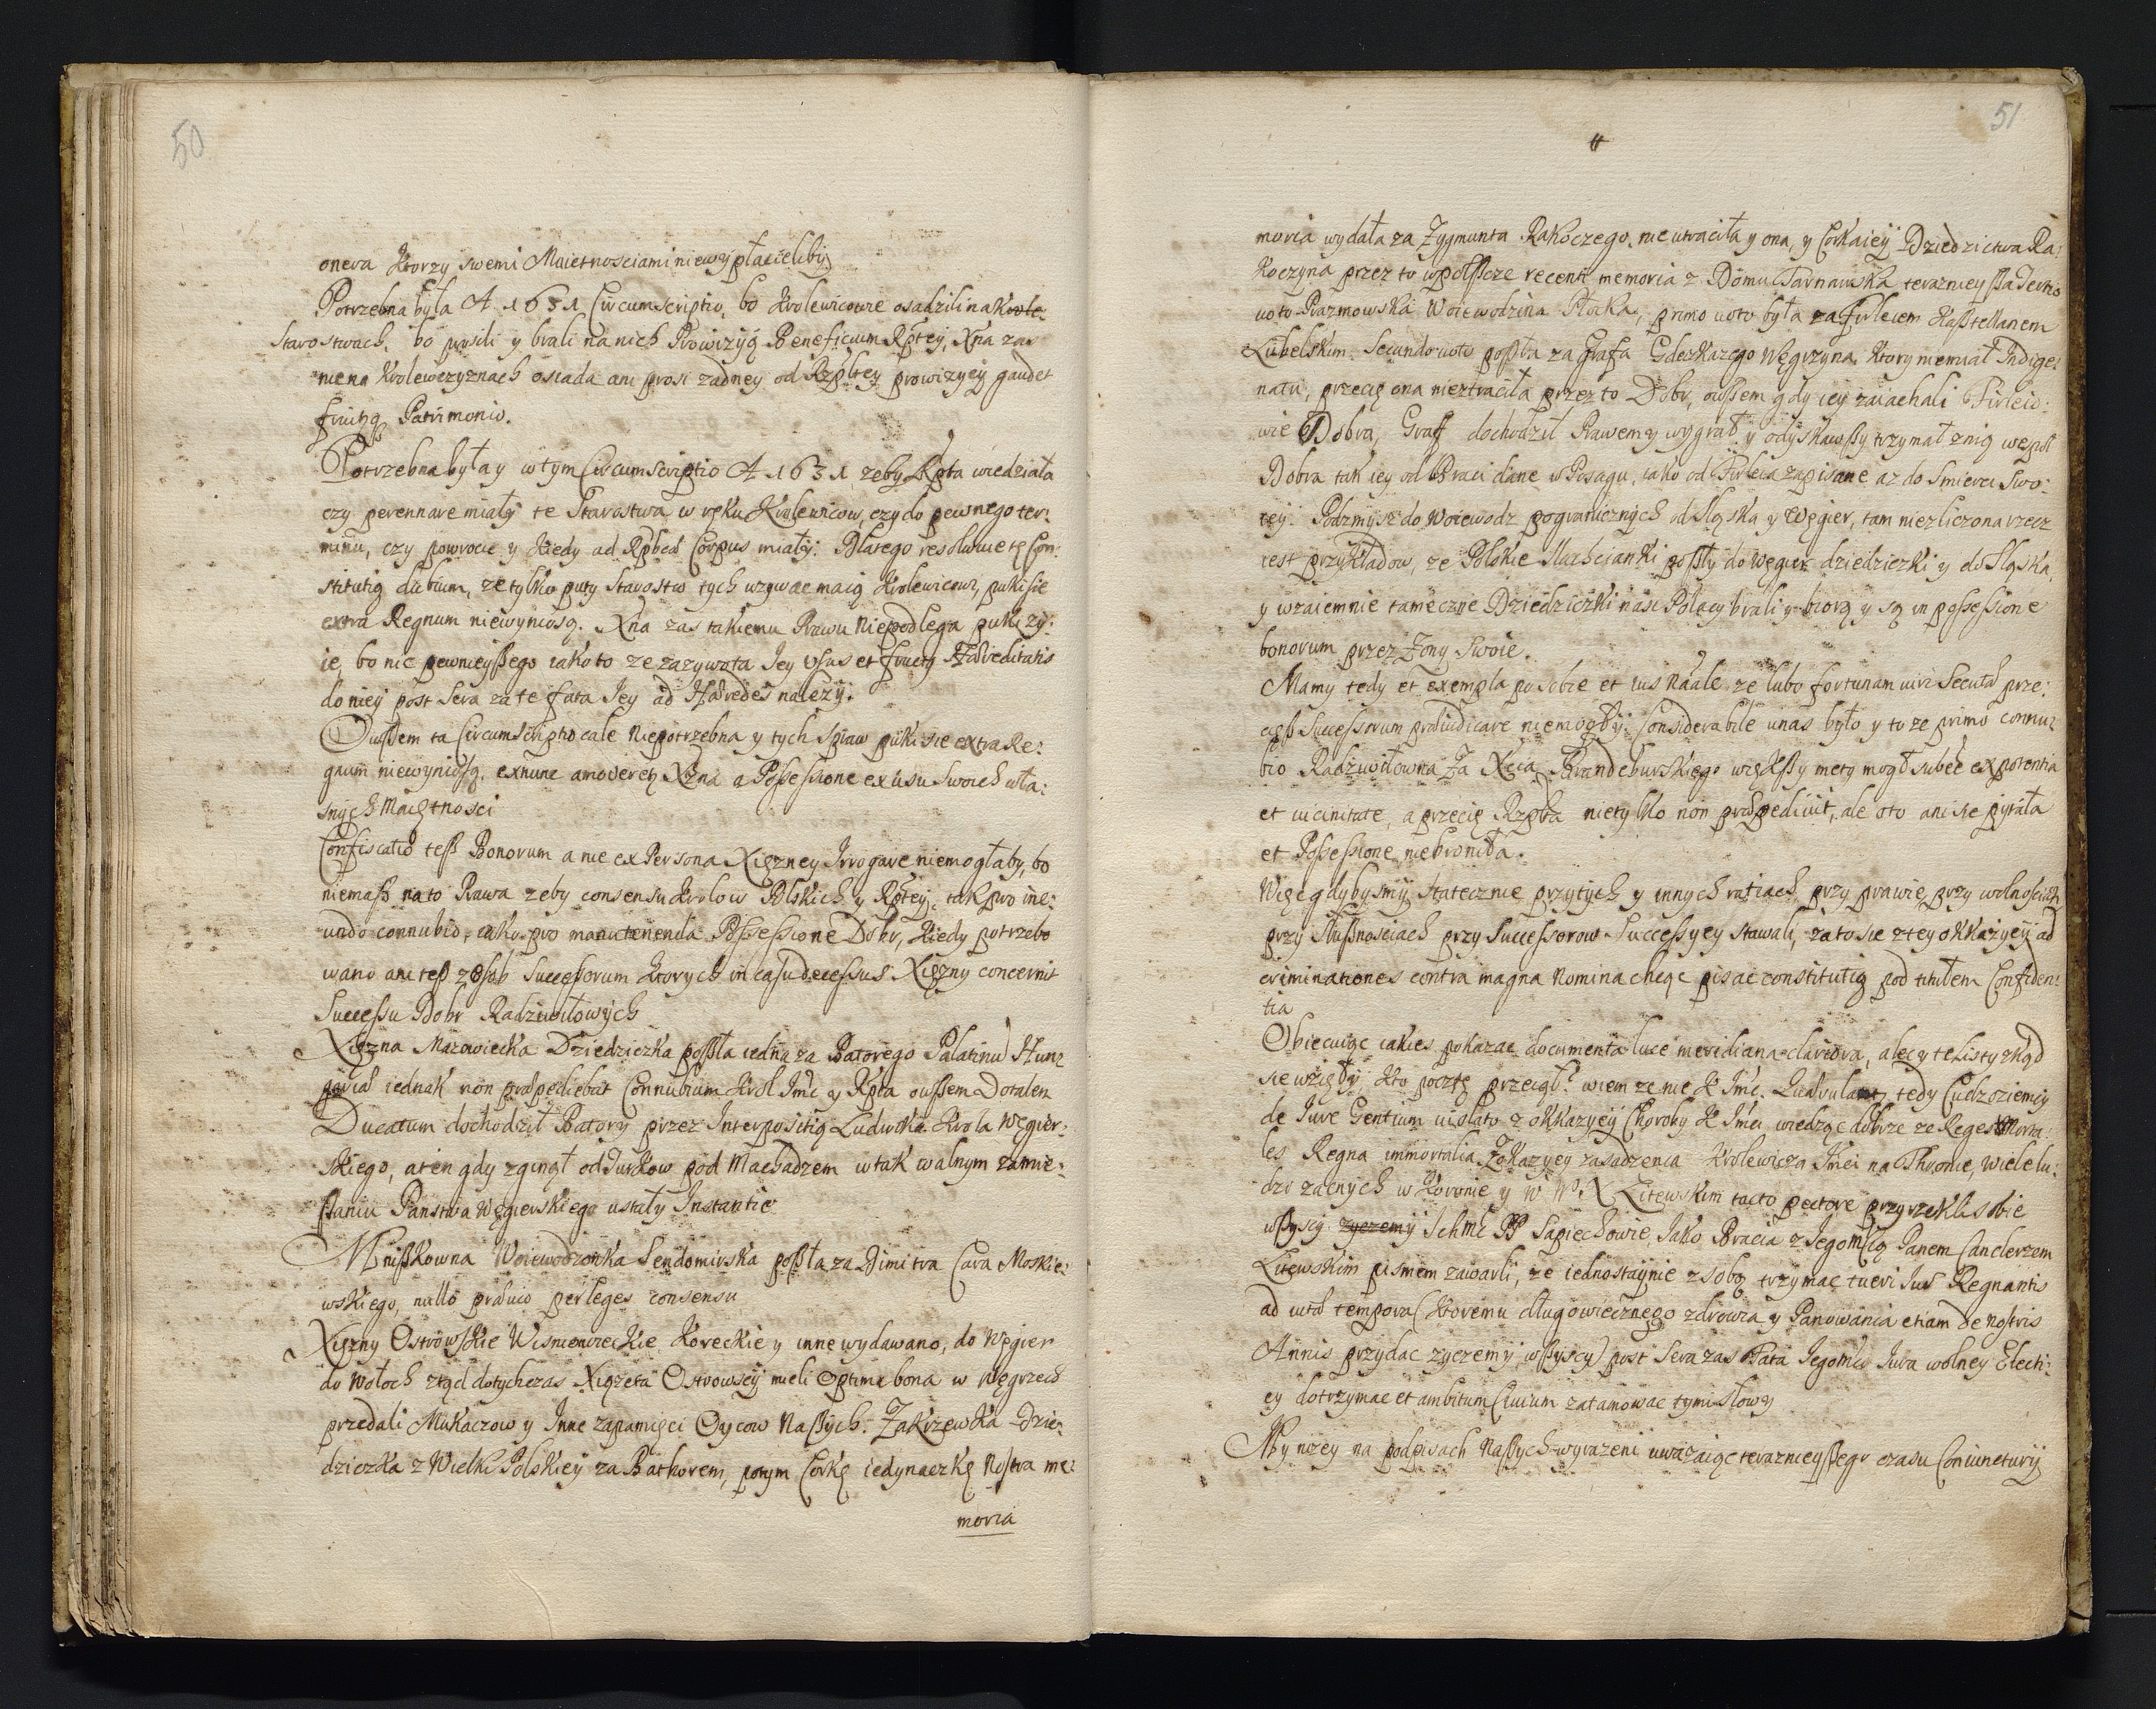 50
onera ktorzy swemi Maiętnosciami niewypłacieliby
Potrzebna była A 1631 Circumscriptio, bo Krolewicowie osadzili na Krole-
Starostwach, bo prosili y brali na nich Prowizyą Beneficium Rptey, Xna zas
nie na Krolewczyznach osiada ani prosi zadney od Rzpltey prowizyey gaudet
Patrimonio.
Potrzebna była y w tym Circumscriptio A 1631 zeby Rpta wiedziała
czy perennare miały te Starostwa w ręku Krolewicow, czy do pewnego ter:
minu, czy powrocic y kiedy ad Rpbcæ Corpus miały. Dlatego resolwuie tę Con:
stitutią dubium, ze tylko puty Starostw tych uzywac maią Krolewicowi, puki sie
extra Regnum niewyniosą. Xna zas takiemu Prawu Niepodlega puki zy:
ie, bo nic pewnieyszego iako to ze zazywota Jey usus et Hæreditatis
do niey post sera za te fata Jey ad Hæredes nalezy.
Ouszem ta Circumscriptio cale Niepotrzebna y tych Spraw puki sie extra Re:
gnum niewyniosą, exnunc amoveret Xzna a Possessione ex usu Swoich wła:
snych Maiętnosci
Confiscatio tesz Bonorum a nie ex Persona Xięzney Irrogare niemogłaby, bo
niemasz na to Prawa zeby consensu Krolow Polskich y Rptey, tak pro ine:
undo connubio, iako pro manutenenda Possessione Dobr, kiedy potrzebo
wano ani tesz z Osob Successorum ktorych in casu decessus Xięzny concernit
Successu Dobr Radziwiłowych
Xięzna Mazowiecka Dziedziczka poszła iedna za Batorego Palatinu Hun:
iednak non præpediebat Connubium Krol Jmc y Rpta ouszem Dotalem
Ducatum dochodził Batory przez Interpositią Ludwika Krola Węgier:
skiego, a ten gdy zginął od Turkow pod Machadzem w tak walnym zamie:
szaniu Panstwa Węgierskiego ustały Instantie
Mniszkowna Woiewodzonka Sendomirska poszła za Dimitra Cara Moskie:
wskiego, nullo prævio per leges consensu
Xięzny Ostrowskie Wisniewieckie Koreckie y inne wydawano, do Węgier
do Wołoch ztąd dotychczas Xięzęta Ostrowscy mieli Optima bona w Węgrzech
przedali Mukaczow y Inne zapamięci Oycow Naszych. Zakrzewska Dzie:
dziczka z Wielki Polskiey za Bathorem, potym Corkę iedynaczkę Nostra me:
moria
51
moria wydała za Zygmunta Rakoczego, nie utraciła y ona, y Corka iey Dziedzictwa Ra:
koczyna przez to w Polszcze recenti memoria z Domu Tarnawska teraznieysza Tertio
voto Prazmowska Woiewodzina Płocka, primo voto była za Firleiem Kasztellanem
Lubelskim. Secundo voto poszła za Grafa Węgrzyna ktory niemiał Indige:
natu, przecię ona nieztraciła przez to Dobr, ouszem gdy iey zaiachali Firleio:
wie Dobra, Graff dochodził Prawem y wygrał y odyskawszy trzymał z nią wespoł
Dobra tak iey od Braci dane w Posagu, iako od Firleia zapisane az do Smierci Swo:
iey. Podzmysz do Woiewodz pogranicznych od Sląska y Węgier, tam niezliczona rzecz
iest przykładow, ze Polskie Slachcianki poszły do Węgier dziedziczki y do Sląska,
y wzaiemnie tameczne Dziedziczki nasi Polacy brali y biorą y są in possessione
bonorum przez Zony Swoie.
Mamy tedy et exempla po sobie et ius Naale ze lubo fortunam viri Secutæ prze:
ciesz Successorum præiudicare niemogły. Considerabile unas było y to ze primo connu:
bio Radziwiłowna Za Xcia Brandeburskiego większy metę mogł subeśe ex potentia
et vicinitate, a przecię Rzpta nietylko non præpedivit, ale oto ani sie pytała
et Possessione niebroniła.
Więc gdybysmy Statecznie przy tych y innych ratiach, przy prawie, przy wolnosciach
przy Słusznosciach przy Successorow Successyey stawali, za to sie z tey okkazyey ad
criminationes contra magna Nomina chcąc pisac constitutią pod titułem Confiden:
tia
Obiecuiąc iakies pokazac documenta luce meridiana clariora, alec y te Listy zkąd
sie wzięły kto pocztę przeiął? wiem ze nie K Jmc. tedy Cudzoziemcy
de Iure Gentium violato z okkazyey Choroby K Jmci wiedząc dobrze ze Reges Morta:
les Regna immortalia Zokazyey zasadzenia Krolewicza Jmci na Thronie, wiele lu:
dzi zacnych w Koronie y W W. X Litewskim tacto pectore przyrzekli sobie
wszyscy zyczemy Ichmc PP Sapiechowie, Jako Bracia z Jegomcią Panem Canclerzem
Litewskim pismem zawarli, ze iednostaynie z sobą trzymac tueri Iura Regnantis
ad vitæ tempora (ktoremu długowiecznego zdrowia y Panowania etiam de nostris
Annis przydac zyczemy wszyscy) post sera zas Fata Jegomci Iura wolney Electi:
ey dotrzymac et ambitum Civium zatamowac tymi słowy
My nizey na podpisach Naszych wyrazeni uwazaiąc teraznieyszego czasu Coniunctury